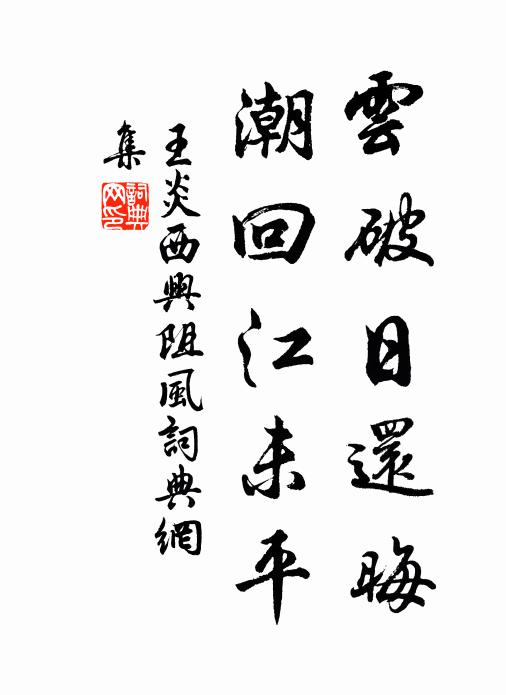 雲破日還晦
潮回江未平
王炎西興阻風詞典網
集
詞典网印